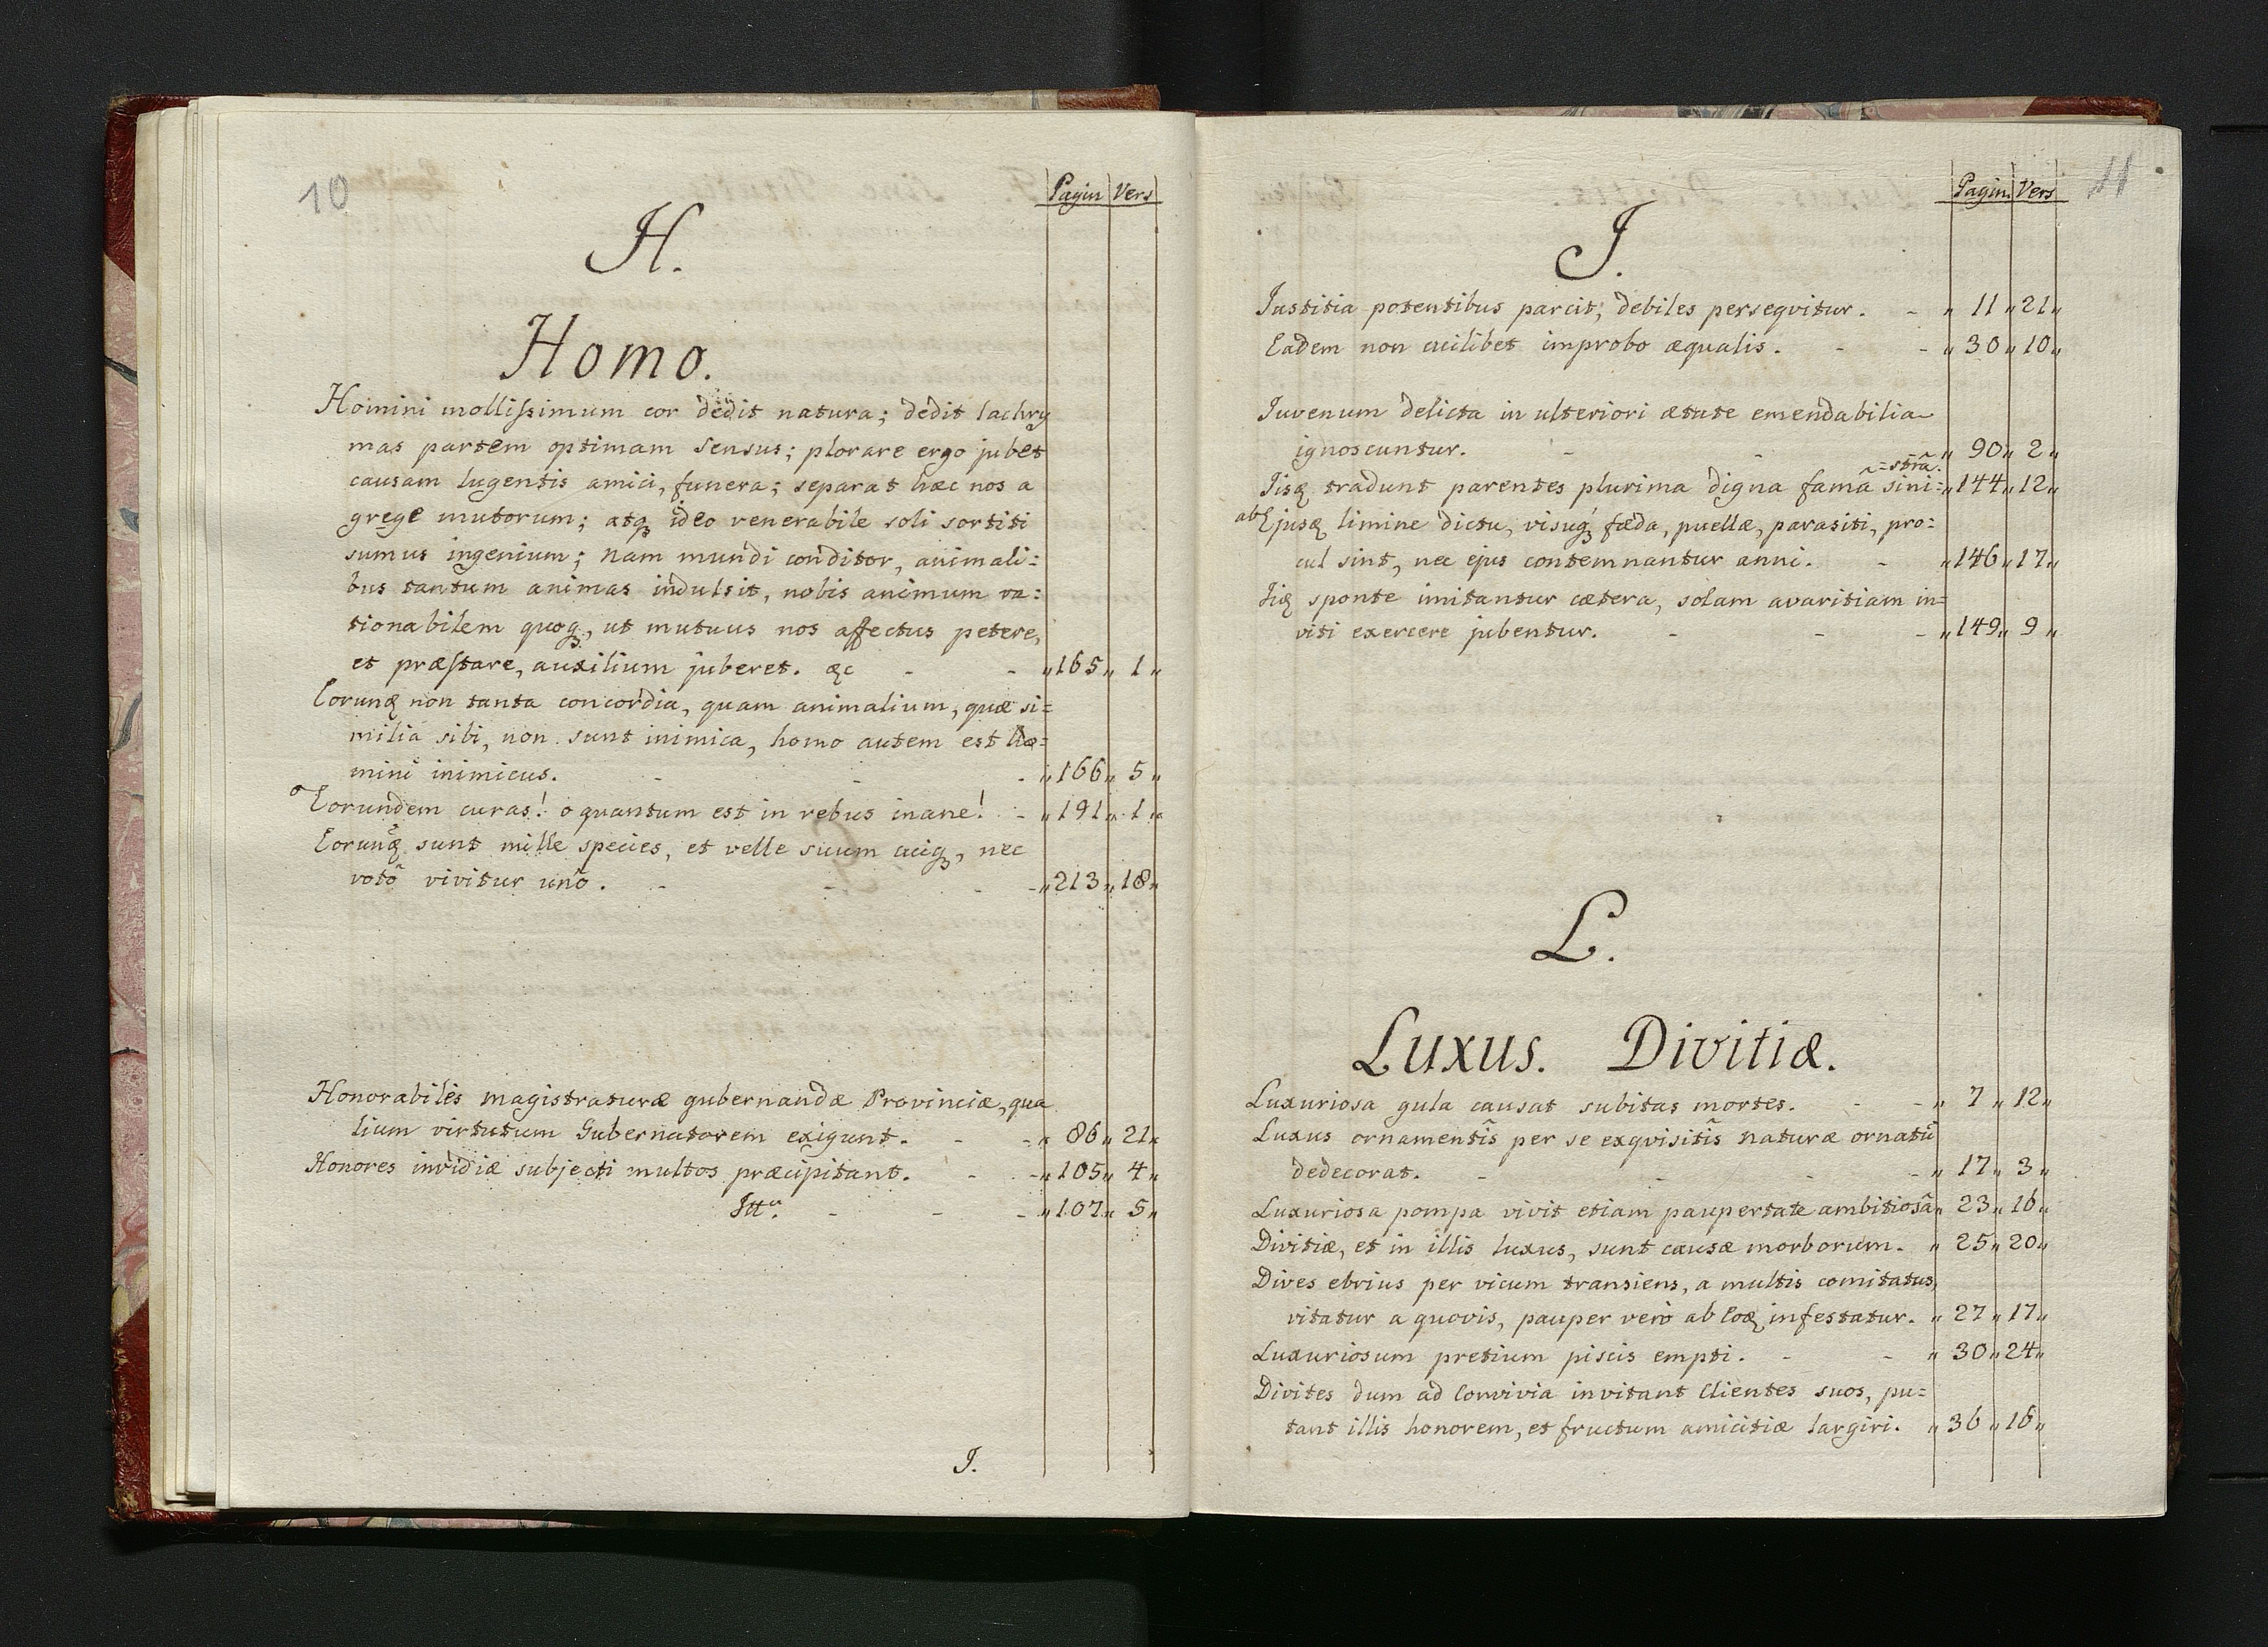 10
Pagin Vers
H.
Homo.
Homini mollissimum cor dedit natura; dedit lachry
mas partem optimam sensus; plorare ergo jubet
causam lugentis amici, funera; separat hæc nos a
grege mutorum; atqꝫ ideo venerabile soli sortiti
sumus ingenium; nam mundi conditor, animali:
bus tantum animas indulsit, nobis animum ra:
tionabilem quoqꝫ, ut mutuus nos affectus petere,
et præstare, auxilium juberet. &c - - „165„ 1„
Eorunqꝫ non tanta concordia, quam animalium, quæ si=
milia sibi, non sunt inimica, homo autem est ho=
mini inimicus. - - - „166„ 5„
o Eorundem curas! o quantum est in rebus inane! - „191„ 1„
Eorunqꝫ sunt mille species, et velle suum cuiqꝫ, nec
votô vivitur unô. - - - - „213„18„
Honorabiles magistraturæ gubernandæ Provinciæ, qua
lium virtutum Gubernatorem exigunt. - - „86„21„
Honores invidiæ subjecti multos præcipitant. - - „105„ 4„
Itt. - - - „107„ 5„
I.
11
Pagin. Vers
I.
Iustitia potentibus parcit, debiles perseqvitur. - „11„21„
Eadem non cuilibet improbo æqualis. - - „30„10„
Iuvenum delicta in ulteriori ætate emendabilia
ignoscuntur. - - „90„ 2„
=strâ.
Iisqꝫ tradunt parentes plurima digna famâ sini= „144„12„
ab Ejusqꝫ limine dictu, visuqꝫ fœda, puellæ, parasiti, pro:
cul sint, nec ejus contemnantur anni. - „146„17„
Iiqꝫ sponte imitantur cætera, solam avaritiam in=
viti exercere jubentur. - - - „149„ 9„
L.
Luxus. Divitiæ.
Luxuriosa gula causat subitas mortes. - - „7„12„
Luxus ornamentis per se exqvisitis naturæ ornatū
dedecorat. - - - - „17„ 3„
Luxuriosa pompa vivit etiam paupertate ambitiosâ „23„16„
Divitiæ, et in illis luxus, sunt causæ morborum. „25„20„
Dives ebrius per vicum transiens, a multis comitatus,
vitatur a quovis, pauper verò ab Eoqꝫ infestatur. „27„17„
Luxuriosum pretium piscis empti. - - „30„24„
Divites dum ad Convivia invitant Clientes suos, pu=
tant illis honorem, et fructum amicitiæ largiri. „36„16„